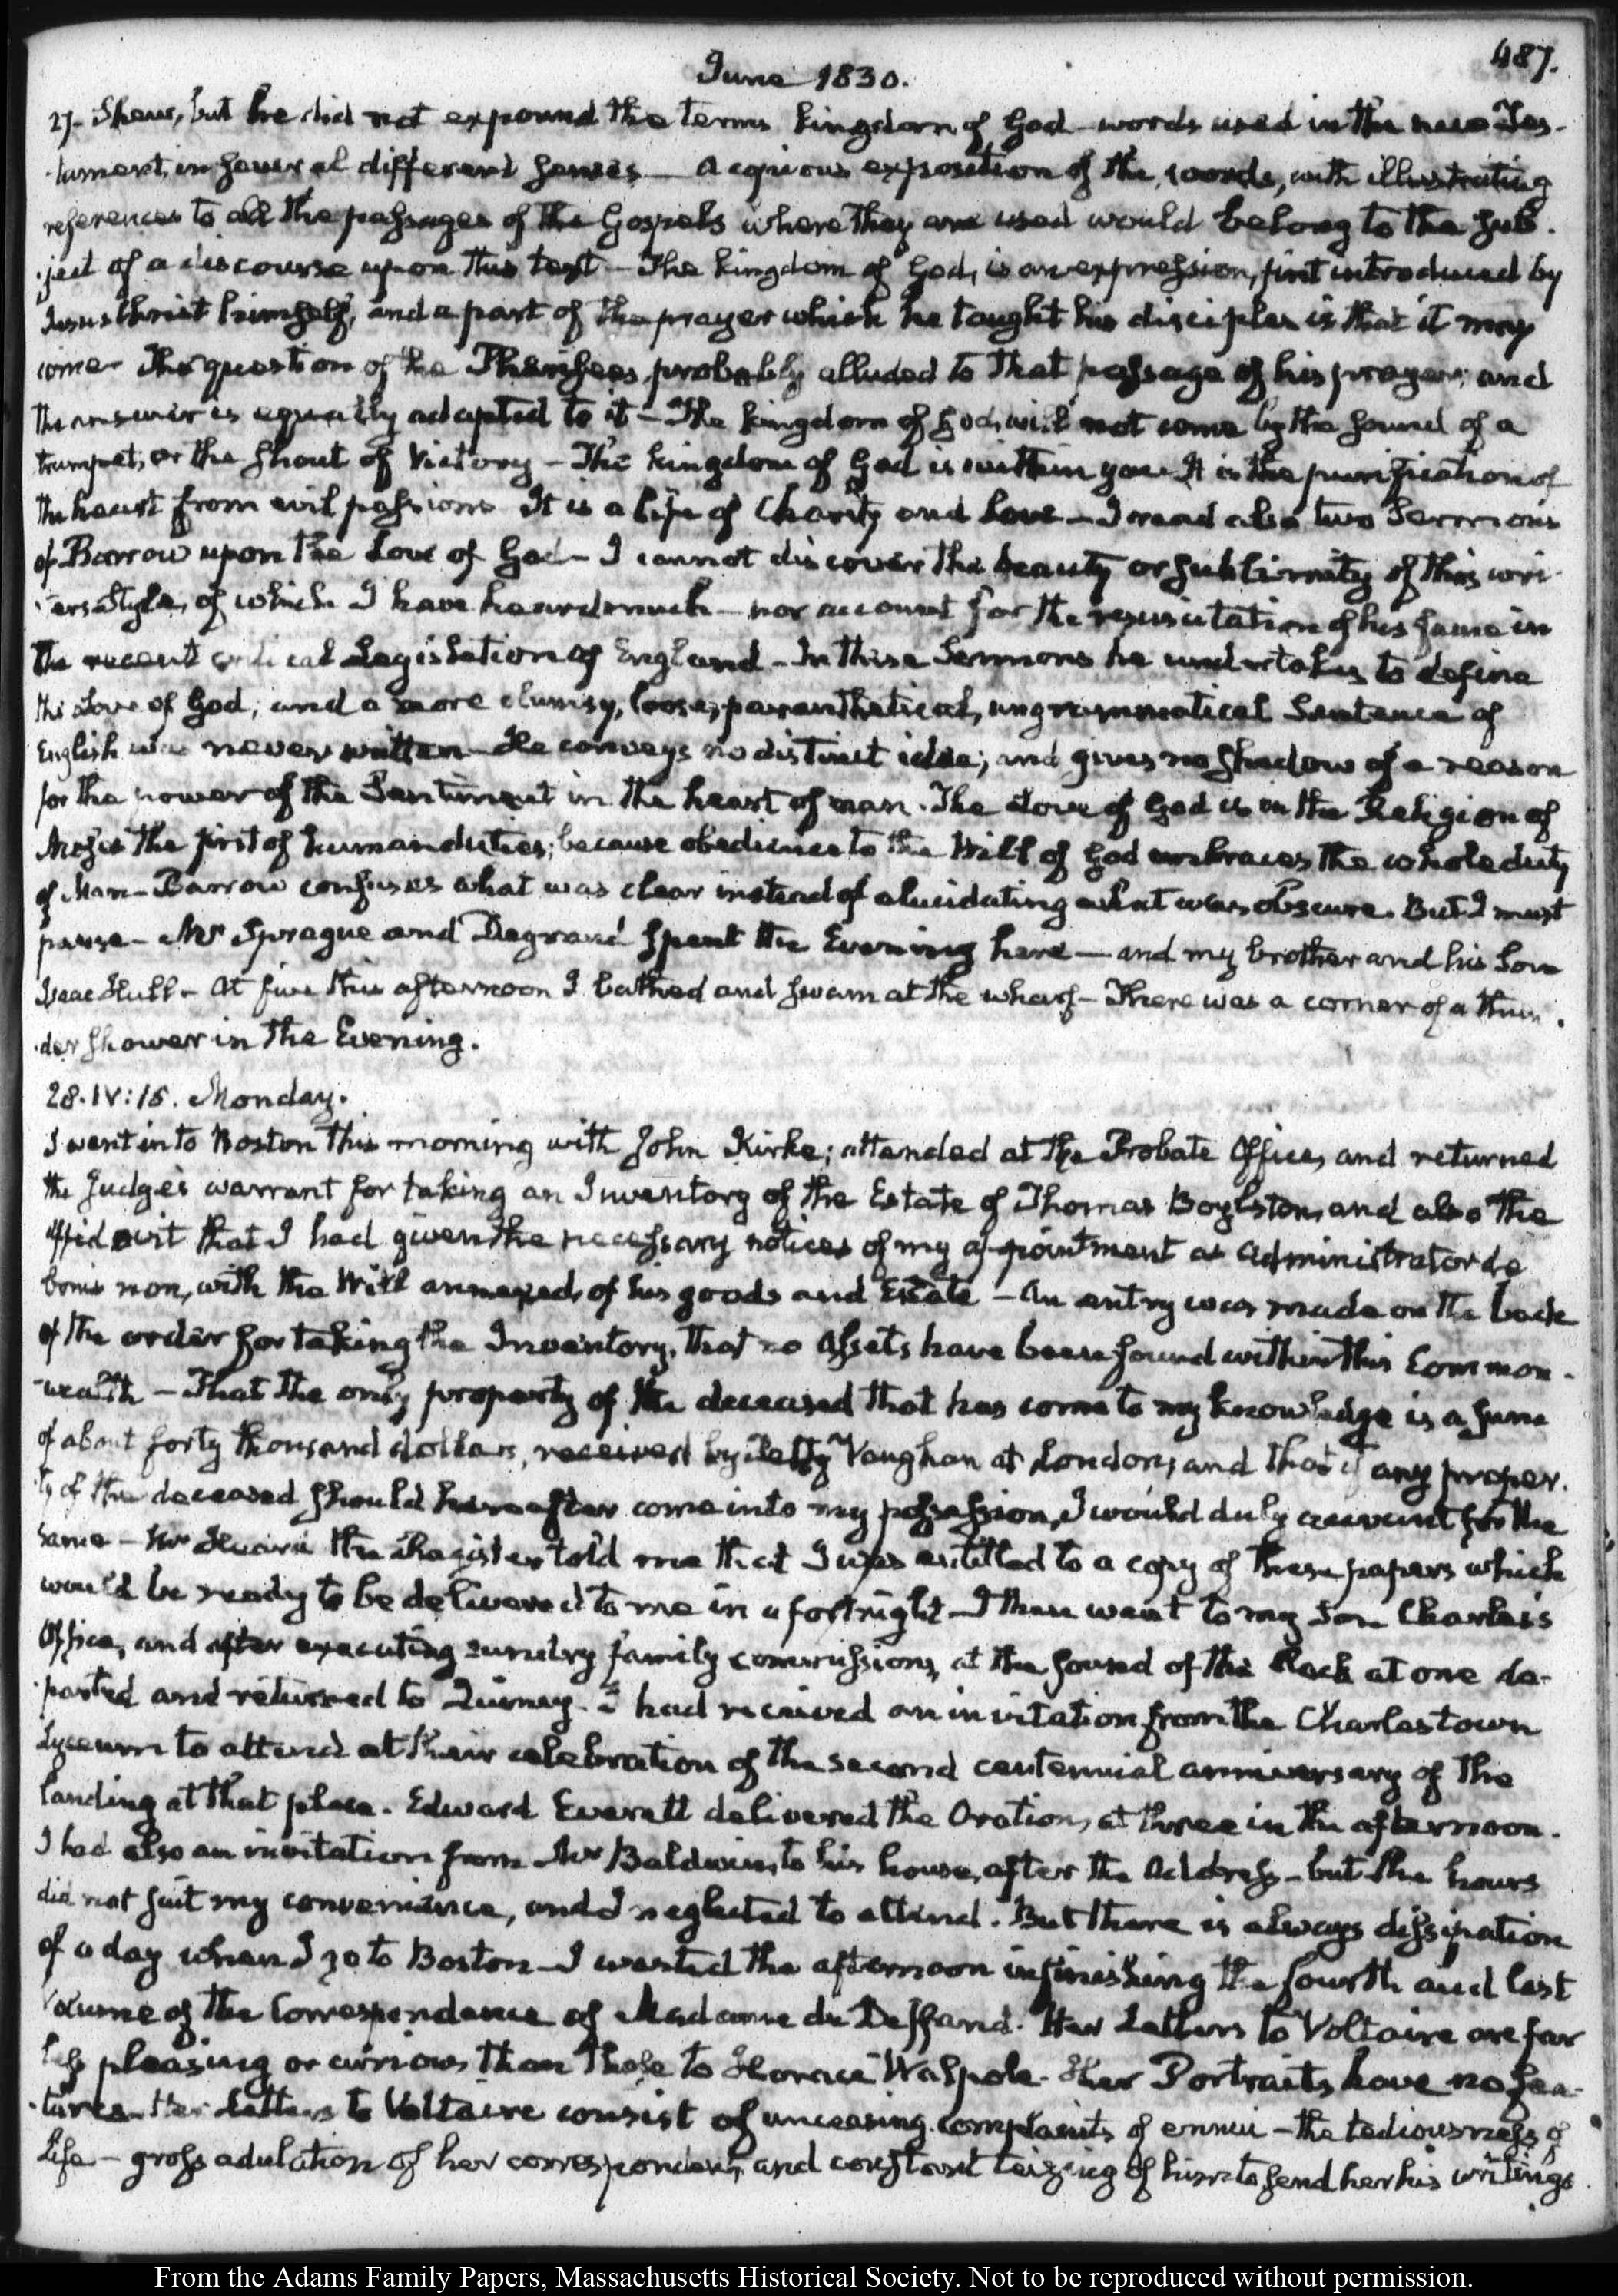 June 1830.
487.
27. Shew, but he did not expound the terms kingdom of God words used in the new Tes-
-tament, in several different senses — a copious exposition of the words, with illustrating
references to all the passages of the Gospels where they are used would belong to the sub-
-ject of a discourse upon this text — The kingdom of God, is an expression, first introduced by
Jesus Christ himself, and a part of the prayer which he taught his disciples is that it may
come — The question of the Pharisees probably alluded to that passage of his prayer; and
the answer is equally adapted to it — The kingdom of God, will not come by the sound of a
trumpet, or the shout of Victory — The kingdom of God is within you. It is the purification of
the heart from evil passions It is a life of Charity and Love — I read also two Sermons
of Barrow upon the Love of God — I cannot discover the beauty or sublimity of this wri-
-ers Style, of which I have heard much — nor account for the resuscitation of his fame in
the recent critical Legislation of England — In these Sermons he undertakes to define
the Love of God; and a more clumsy, loose, parenthetical, ungrammatical Sentence of
English was never written — He conveys no distinct idea; and gives no shadow of a reason
for the power of the Sentiment in the heart of man. The Love of God is in the Religion of
Moses the first of human duties; because obedience to the Will of God embraces the whole duty
of Man — Barrow confuses what was clear instead of elucidating what was obscure. But I must
pause — Mr Sprague and Degrand spent the Evening here — and my brother and his Son
Isaac Hull — At five this afternoon I bathed and swam at the wharf — There was a corner of a thun-
-der shower in the Evening.
28. IV:15. Monday.
I went into Boston this morning with John Kirke; attended at the Probate Office, and returned
the Judge's warrant for taking an Inventory of the Estate of Thomas Boylston, and also the
affidavit that I had given the necessary notices of my appointment as Administrator de
bonis non, with the Will annexed, of his goods and Estate — An entry was made on the back
of the order for taking the Inventory, that no Assets have been found within this Common-
-wealth — That the only property of the deceased that has come to my knowledge is a sum
of about forty thousand dollars, received by Petty Vaughan at London; and that if any proper-
ty of the deceased should hereafter come into my possession, I would duly account for the
same — Mr the Register told me that I was entitled to a copy of these papers which
would be ready to be delivered to me in a fortnight — I then went to my Son Charles's
Office, and after executing sundry family commissions, at the sound of the Clock at one de-
-parted and returned to Quincy. I had received an invitation from the Charlestown
Lyceum to attend at their celebration of the second centennial anniversary of the
landing at that place. Edward Everett delivered the Oration, at three in the afternoon.
I had also an invitation from Mr Baldwin, to his house, after the Address — but the hours
did not suit my convenience, and I neglected to attend. But there is always dissipation
of a day when I go to Boston — I wasted the afternoon in finishing the fourth and last
volume of the Correspondence of Madame du Deffand. Her Letters to Voltaire are far
less pleasing or curious than those to Horace Walpole. Her Portraits have no fea-
-tures. Her Letters to Voltaire consist of unceasing complaints of ennui — the tediousness of
Life — gross adulation of her correspondent, and constant teizing of him to send her his writings.
From the Adams Family Papers, Massachusetts Historical Society. Not to be reproduced without permission.